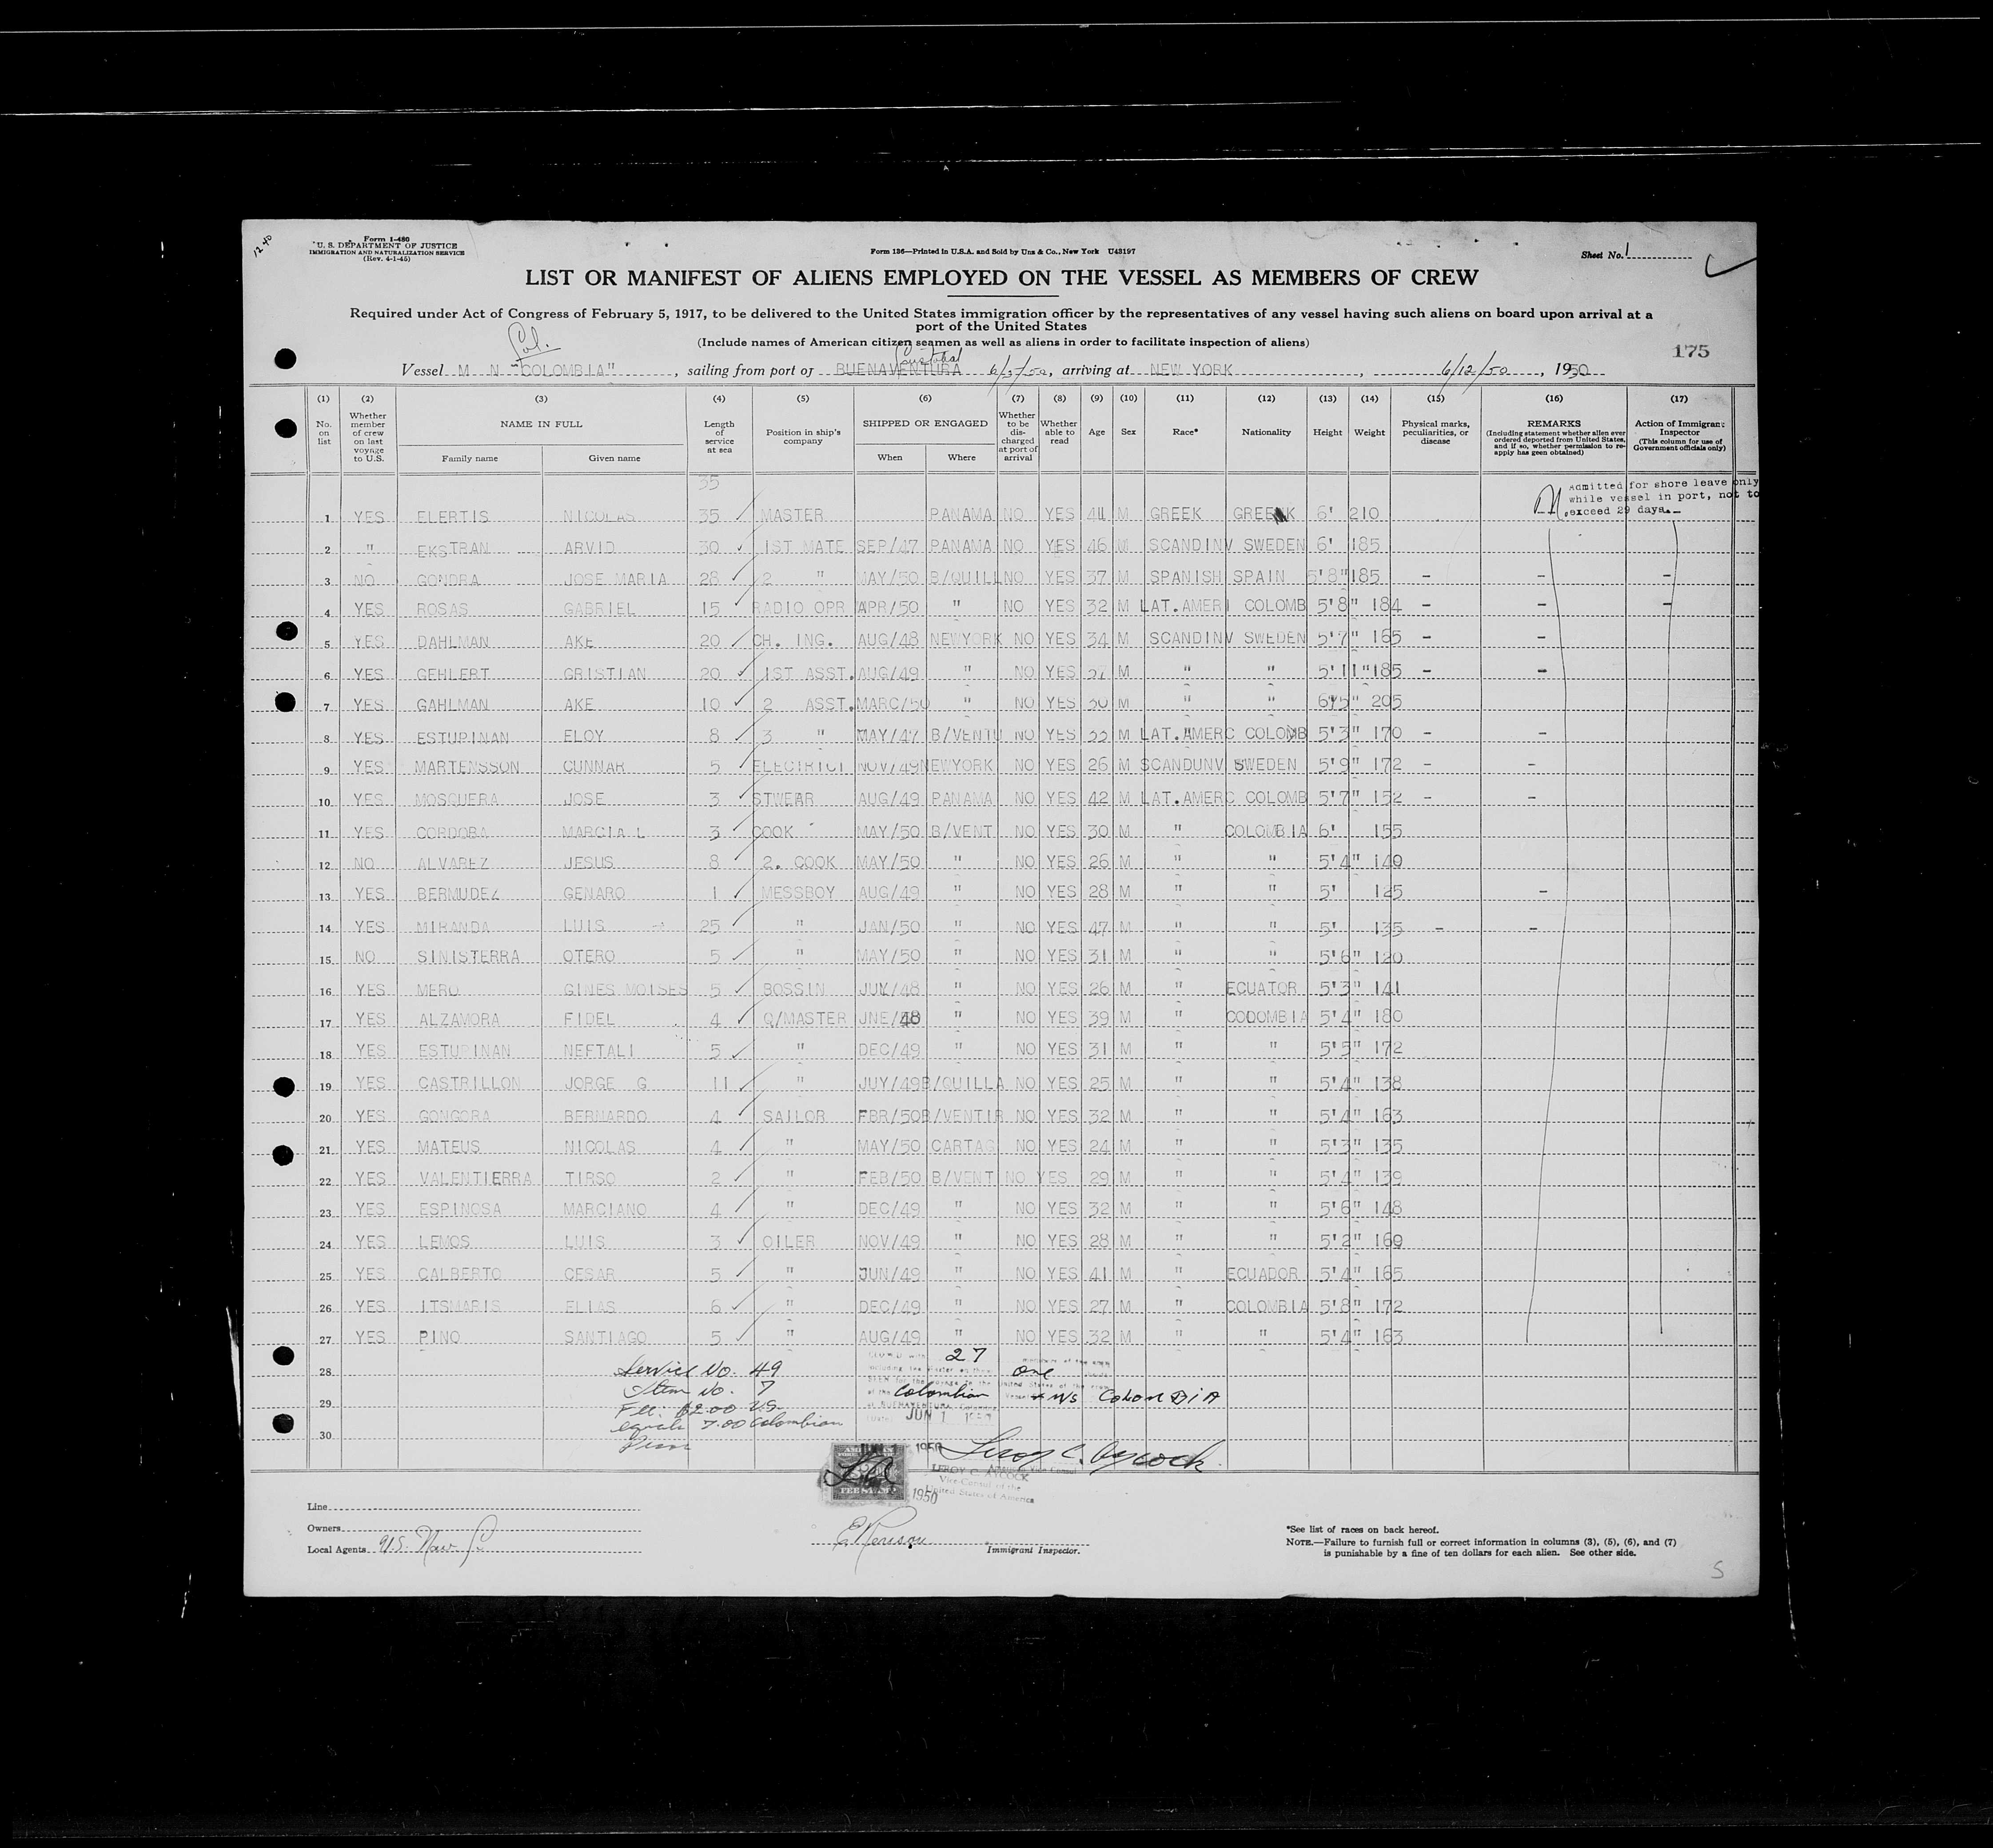 12 40
Form I-480
U. S. DEPARTMENT OF JUSTICE
IMMIGRATION AND NATURALIZATION SERVICE
(Rev. 4-1-45)
Form 136—Printed in U.S.A. and Sold by Unz & Co., New York U43197
Sheet No. 1
LIST OR MANIFEST OF ALIENS EMPLOYED ON THE VESSEL AS MEMBERS OF CREW
Required under Act of Congress of February 5, 1917, to be delivered to the United States immigration officer by the representatives of any vessel having such aliens on board upon arrival at a
port of the United States
(Include names of American citizen seamen as well as aliens in order to facilitate inspection of aliens)
175
Col.
Cristobal
Vessel M N "COLOMBIA", sailing from port of BUENAVENTURA 6/5/50, arriving at NEW YORK, 6/12/50, 1950
(1) (2) (3) (4) (5) (6) (7) (8) (9) (10) (11) (12) (13) (14) (15) (16) (17)
No. on list
Whether member of crew on last voyage to U.S.
NAME IN FULL
Family name
Given name
Length of service at sea
Position in ship's company
SHIPPED OR ENGAGED
When
Where
Whether to be discharged at port of arrival
Whether able to read
Age
Sex
Race*
Nationality
Height
Weight
Physical marks, peculiarities, or disease
REMARKS
(Including statement whether alien ever ordered deported from United States, and if so, whether permission to re-apply has geen obtained)
Action of Immigrant Inspector
(This column for use of Government officials only)
35
Admitted for shore leave only
while vessel in port, not to
exceed 29 days.
1 YES ELERTIS NICOLAS 35 MASTER PANAMA NO YES 44 M GREEK GREEK 6' 210
2 " EKSTRAN ARVID 30 1ST MATE SEP/47 PANAMA NO YES 46 M SCANDINV SWEDEN 6' 185
3 NO GONDRA JOSE MARIA 28 2 " MAY/50 B/QUILL NO YES 37 M SPANISH SPAIN 5'8" 185 - - -
4 YES ROSAS GABRIEL 15 RADIO OPR APR/50 " NO YES 32 M LAT.AMERI COLOMB 5'8" 184 - - -
5 YES DAHLMAN AKE 20 CH. ING. AUG/48 NEWYORK NO YES 34 M SCANDINV SWEDEN 5'7" 165 - -
6 YES GEHLERT GRISTIAN 20 1ST ASST. AUG/49 " NO YES M " " 5'11" 185 - -
7 YES GAHLMAN AKE 10 2 ASST. MARC/50 " NO YES 30 M " " 205
8 YES ESTUPINAN ELOY 8 3 " MAY/47 B/VENTU NO YES M LAT.AMERC COLOMB 5'3" 170 - -
9 YES MARTENSSON CUNNAR 5 ELECTRICI NOV/49 NEWYORK NO YES 26 M SCANDUNV SWEDEN 5'9" 172 - -
10 YES MOSQUERA JOSE 3 STWEAR AUG/49 PANAMA NO YES 42 M LAT.AMERC COLOMB 5'7" 152 - -
11 YES CORDOBA MARCIA L 3 COOK MAY/50 B/VENT NO YES 30 M " COLOMBIA 6' 155
12 NO ALVAREZ JESUS 8 2. COOK MAY/50 " NO YES 26 M " " 5'4" 149
13 YES BERMUDEZ GENARO 1 MESSBOY AUG/49 " NO YES 28 M " " 5' 125 -
14 YES MIRANDA LUIS 25 " JAN/50 " NO YES 47 M " " 5' 135 - -
15 NO SINISTERRA OTERO 5 " MAY/50 " NO YES 31 M " " 5'6" 120
16 YES MERO GINES MOISES 5 BOSSIN JUL/48 " NO YES 26 M " ECUATOR 5'3" 141
17 YES ALZAMORA FIDEL 4 Q/MASTER JNE/48 " NO YES 39 M " COLOMBIA 5'4" 180
18 YES ESTUPINAN NEFTALI 5 " DEC/49 " NO YES 31 M " " 5'5" 172
19 YES CASTRILLON JORGE G 11 " JUY/49 B/QUILLA NO YES 25 M " " 5'4" 138
20 YES GONGORA BERNARDO 4 SAILOR FBR/50 B/VENTIR NO YES 32 M " " 5'4" 163
21 YES MATEUS NICOLAS 4 " MAY/50 CARTAG NO YES 24 M " " 5'3" 135
22 YES VALENTIERRA TIRSO 2 " FEB/50 B/VENT NO YES 29 M " " 5'4" 139
23 YES ESPINOSA MARCIANO 4 " DEC/49 " NO YES 32 M " " 5'6" 148
24 YES LEMOS LUIS 3 OILER NOV/49 " NO YES 28 M " " 5'2" 169
25 YES CALBERTO CESAR 5 " JUN/49 " NO YES 41 M " ECUADOR 5'4" 165
26 YES ITSMARIS ELIAS 6 " DEC/49 " NO YES 27 M " COLOMBIA 5'8" 172
27 YES PINO SANTIAGO 5 " AUG/49 " NO YES 32 M " " 5'4" 163
28
29
30
Service No. 49
Item No. 7
Fee: $2.00 U.S.
equals 7.00 Colombian
27
one
Colombian M/S COLOMBIA
BUENAVENTURA
JUN 1
JUN 1 1950
Leroy C. Aycock
LEROY C. AYCOCK
Vice-Consul of the
United States of America
FEE STAMP
1950
Line
Owners
Local Agents U.S. Nav.
Immigrant Inspector.
*See list of races on back hereof.
NOTE.—Failure to furnish full or correct information in columns (3), (5), (6), and (7)
is punishable by a fine of ten dollars for each alien. See other side.
S